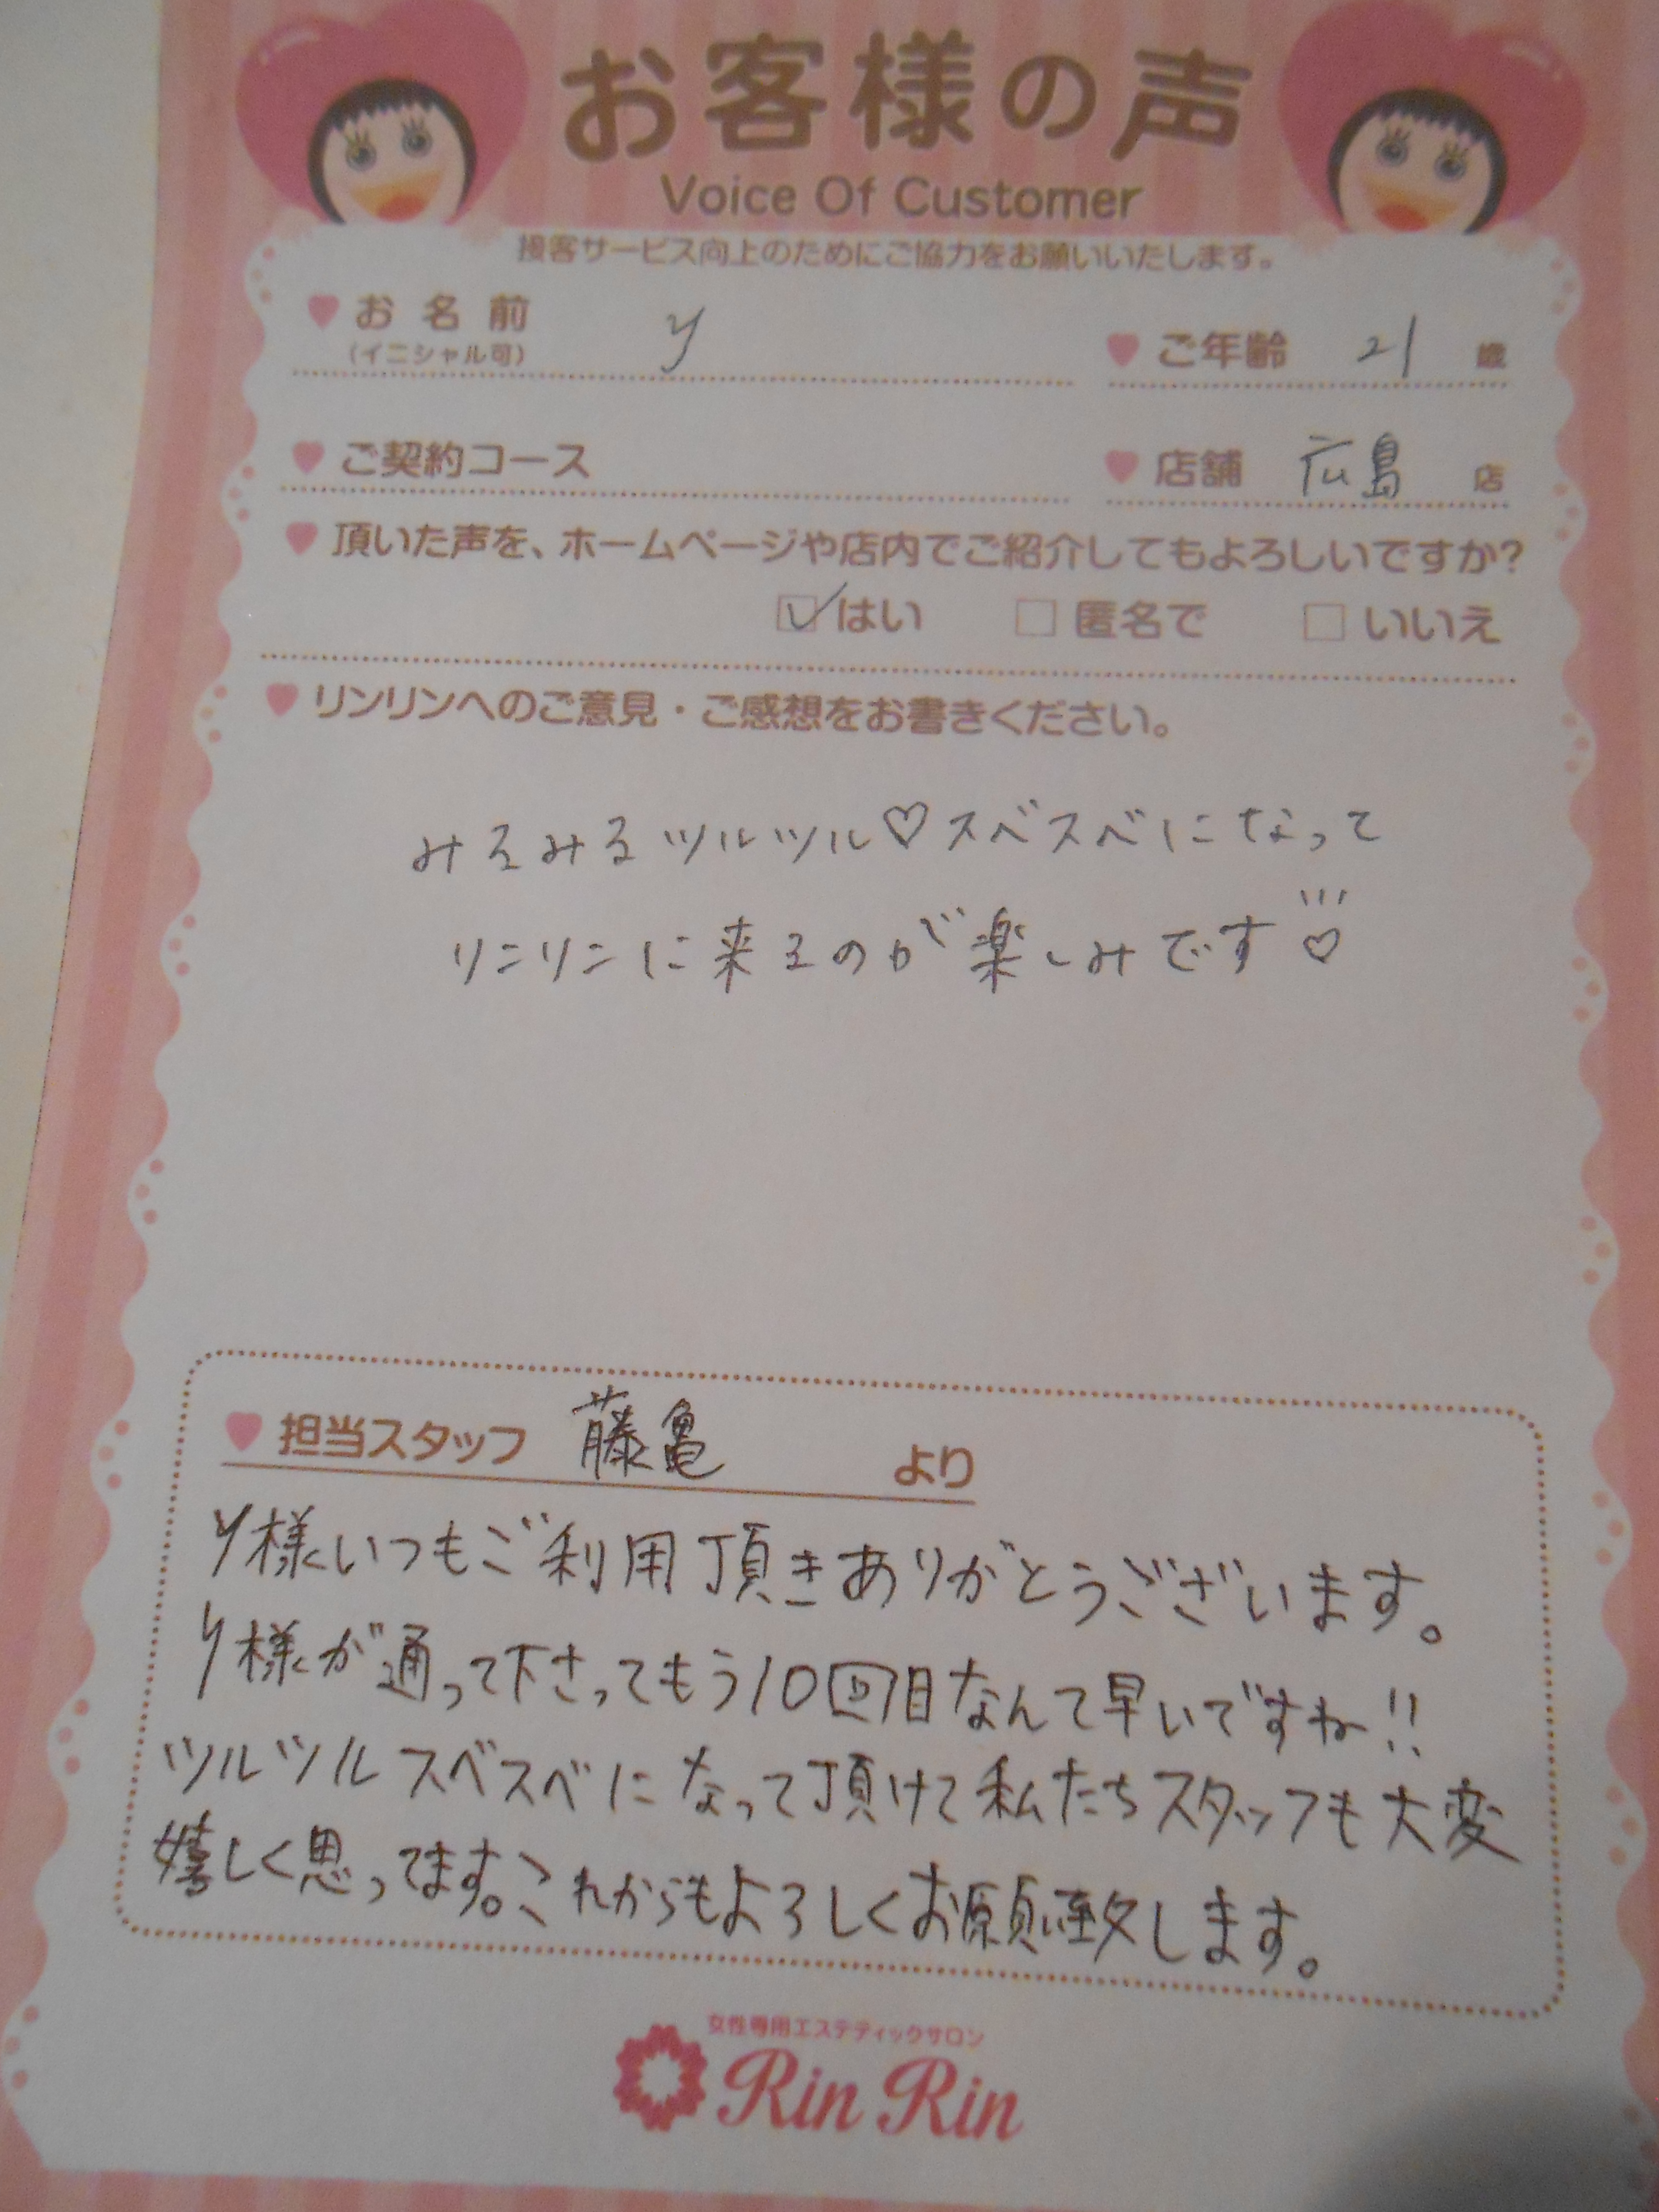 お客様の声
Voice Of Customer
接客サービス向上のためにご協力をお願いいたします。
お名前 y
(イニシャル可)
ご年齢 21 歳
ご契約コース
店舗 広島 店
頂いた声を、ホームページや店内でご紹介してもよろしいですか?
☑はい □匿名で □いいえ
リンリンへのご意見・ご感想をお書きください。
みるみるツルツル♡スベスベになって
リンリンに来るのが楽しみです♡
担当スタッフ 藤亀 より
y様いつもご利用頂きありがとうございます。
y様が通って下さってもう10回目なんて早いですね!!
ツルツルスベスベになって頂けて私たちスタッフも大変
嬉しく思ってます。これからもよろしくお願い致します。
女性専用エステティックサロン
Rin Rin